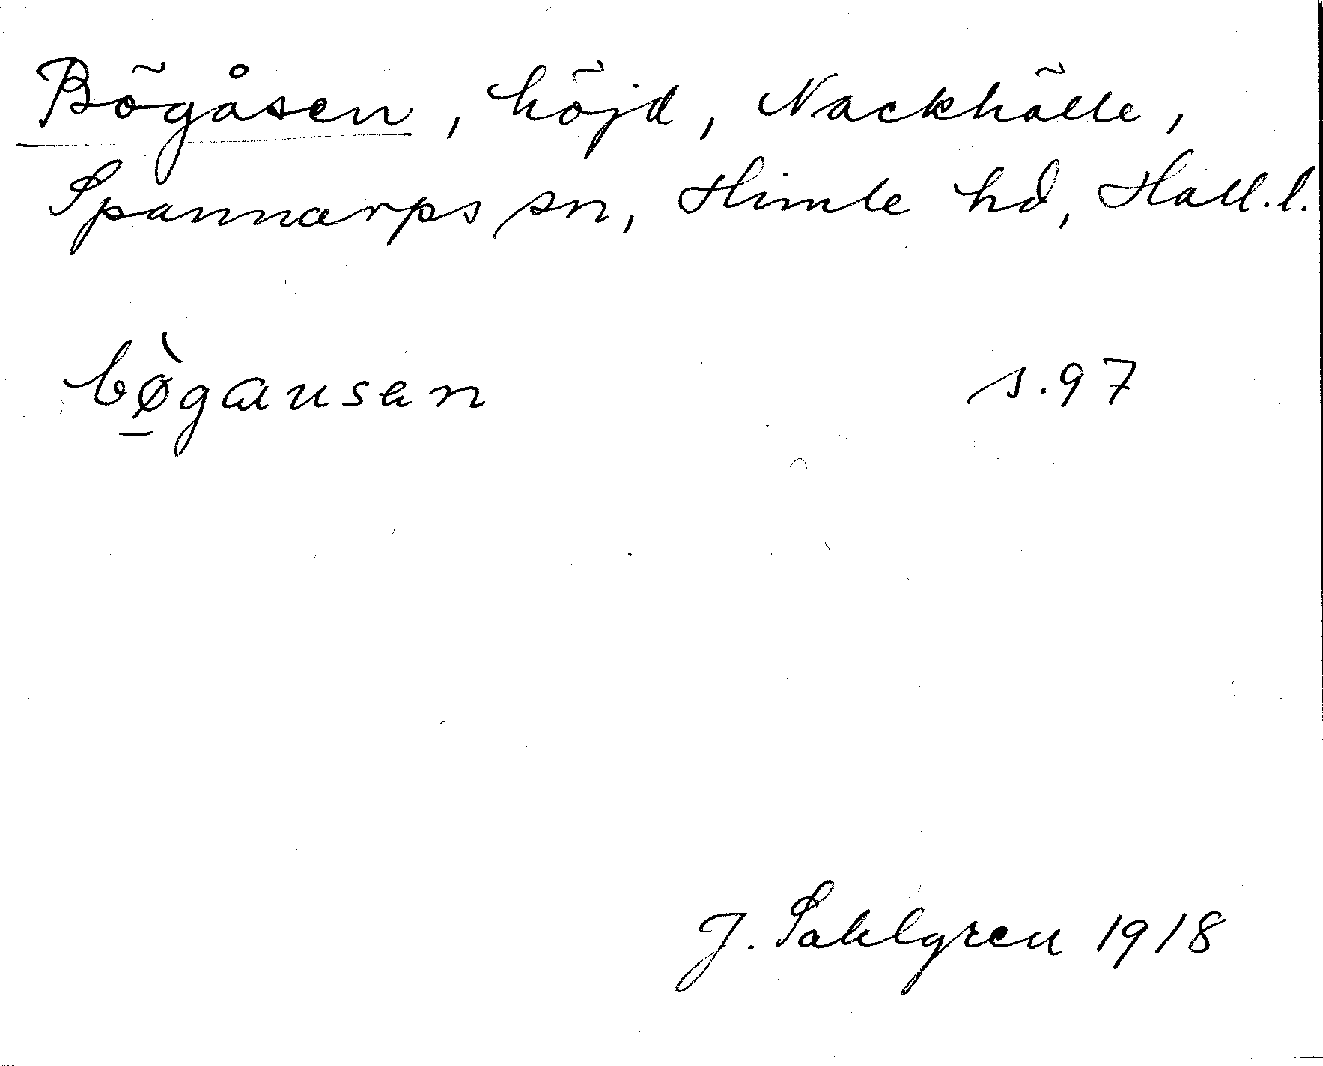 Bögåsen, höjd, Nackhälle,
Spannarps sn, Himle hd, Hall.l.
bø̱̀gausen s.97
J. Sahlgren 1918